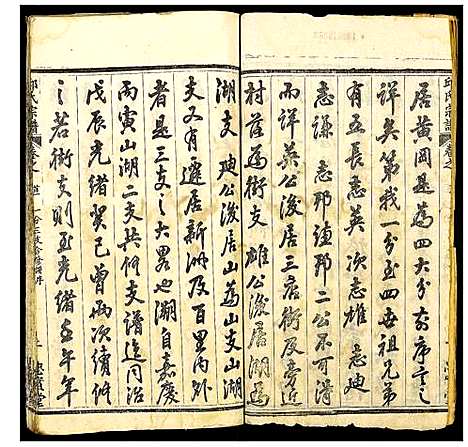 居黃岡是為四大分前序言之
詳矣第我一分至四世祖兄弟
有五長志英次志雄志迪
志謙志郡謙郡二公不可得
詳英公後居三店街及旁近
村莊為街支雄公後居湖為
湖支迪公後居山為山支山湖
支又有遷居新洲及百里內外
者是三支之大畧也溯自嘉慶
丙寅山湖二支共修支譜迨同治
戊辰光緒癸巳曾兩次續修
之若街支則至光緒壬午年
邱氏宗譜